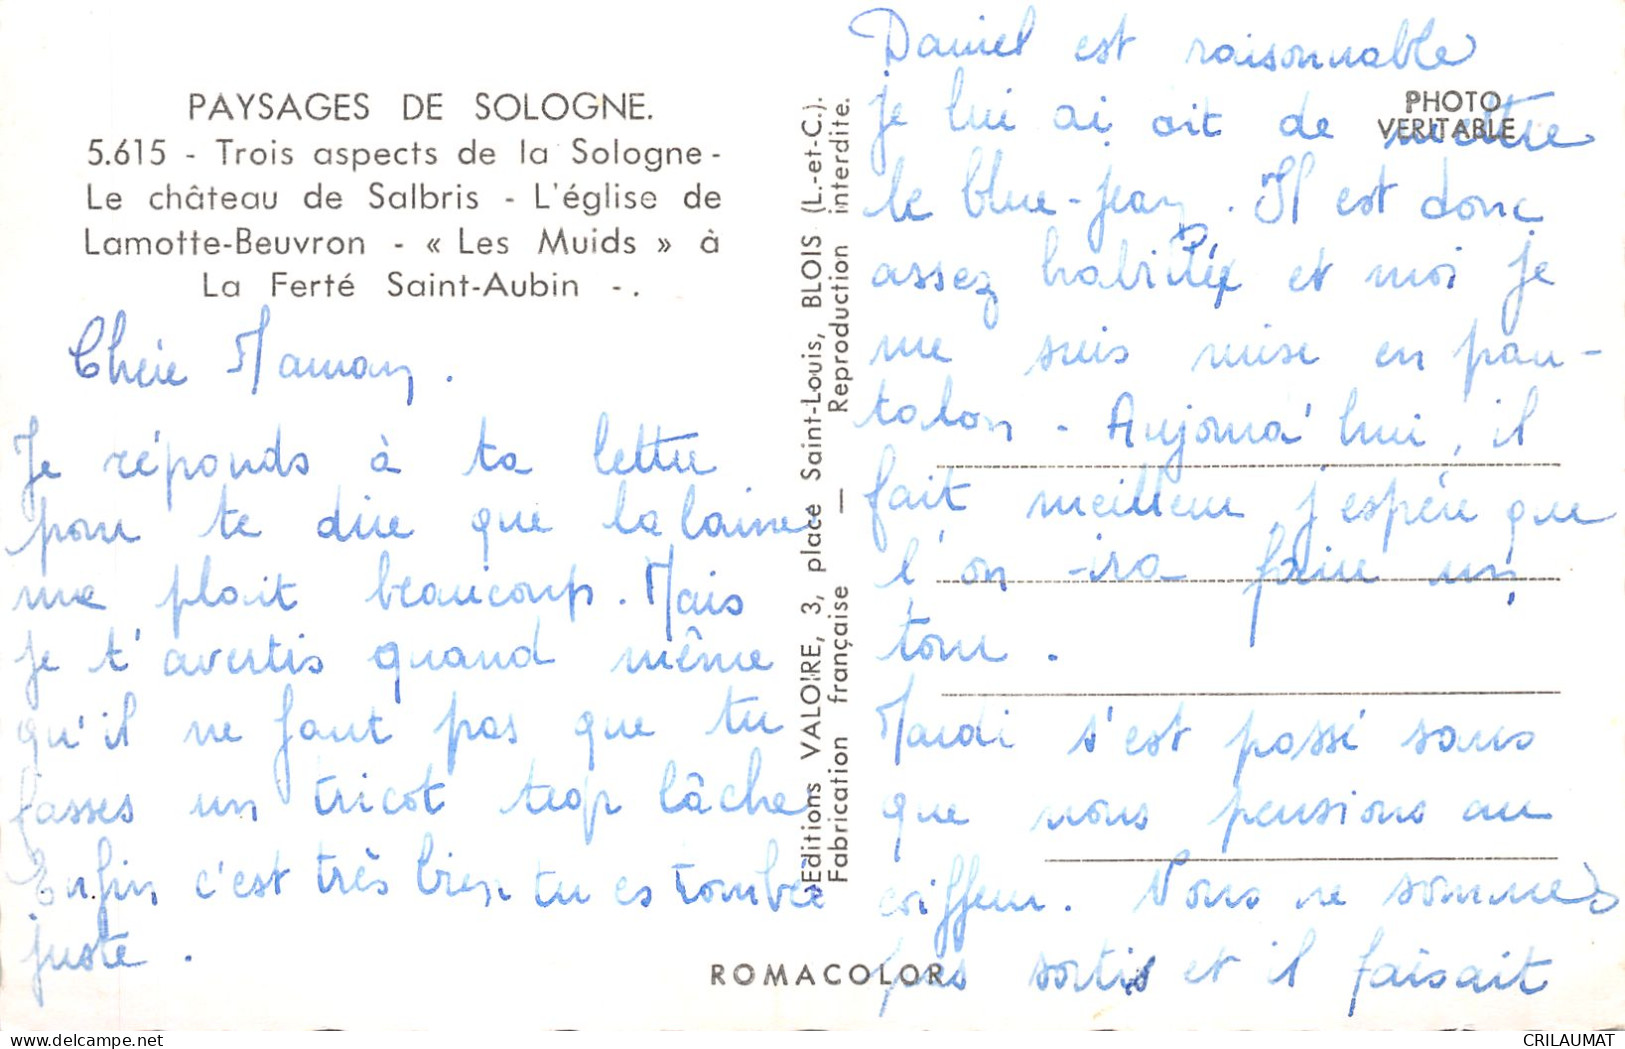 PAYSAGES DE SOLOGNE.
5.615 - Trois aspects de la Sologne -
Le château de Salbris - L'église de
Lamotte-Beuvron - « Les Muids » à
La Ferté Saint-Aubin - .
Chérie Maman .
Je réponds à ta lettre
pour te dire que la laine
me plait beaucoup. Mais
je t'avertis quand même
qu'il ne faut pas que tu
fasses un tricot trop lâche
Enfin c'est très bien tu es tombée
juste .
Editions VALOIRE, 3, place Saint-Louis, BLOIS (L.-et-C.).
Fabrication française — Reproduction interdite.
ROMACOLOR
PHOTO
VERITABLE
Daniel est raisonnable
je lui ai dit de mettre
le blue-jean . Il est donc
assez habillé et moi je
me suis mise en pan-
talon - Aujourd'hui, il
fait meilleur, j'espére que
l'on ira faire un
tour .
Mardi s'est passé sans
que nous pensions au
coiffeur. Nous ne sommes
pas sortis et il faisait
delcampe.net
CRILAUMAT